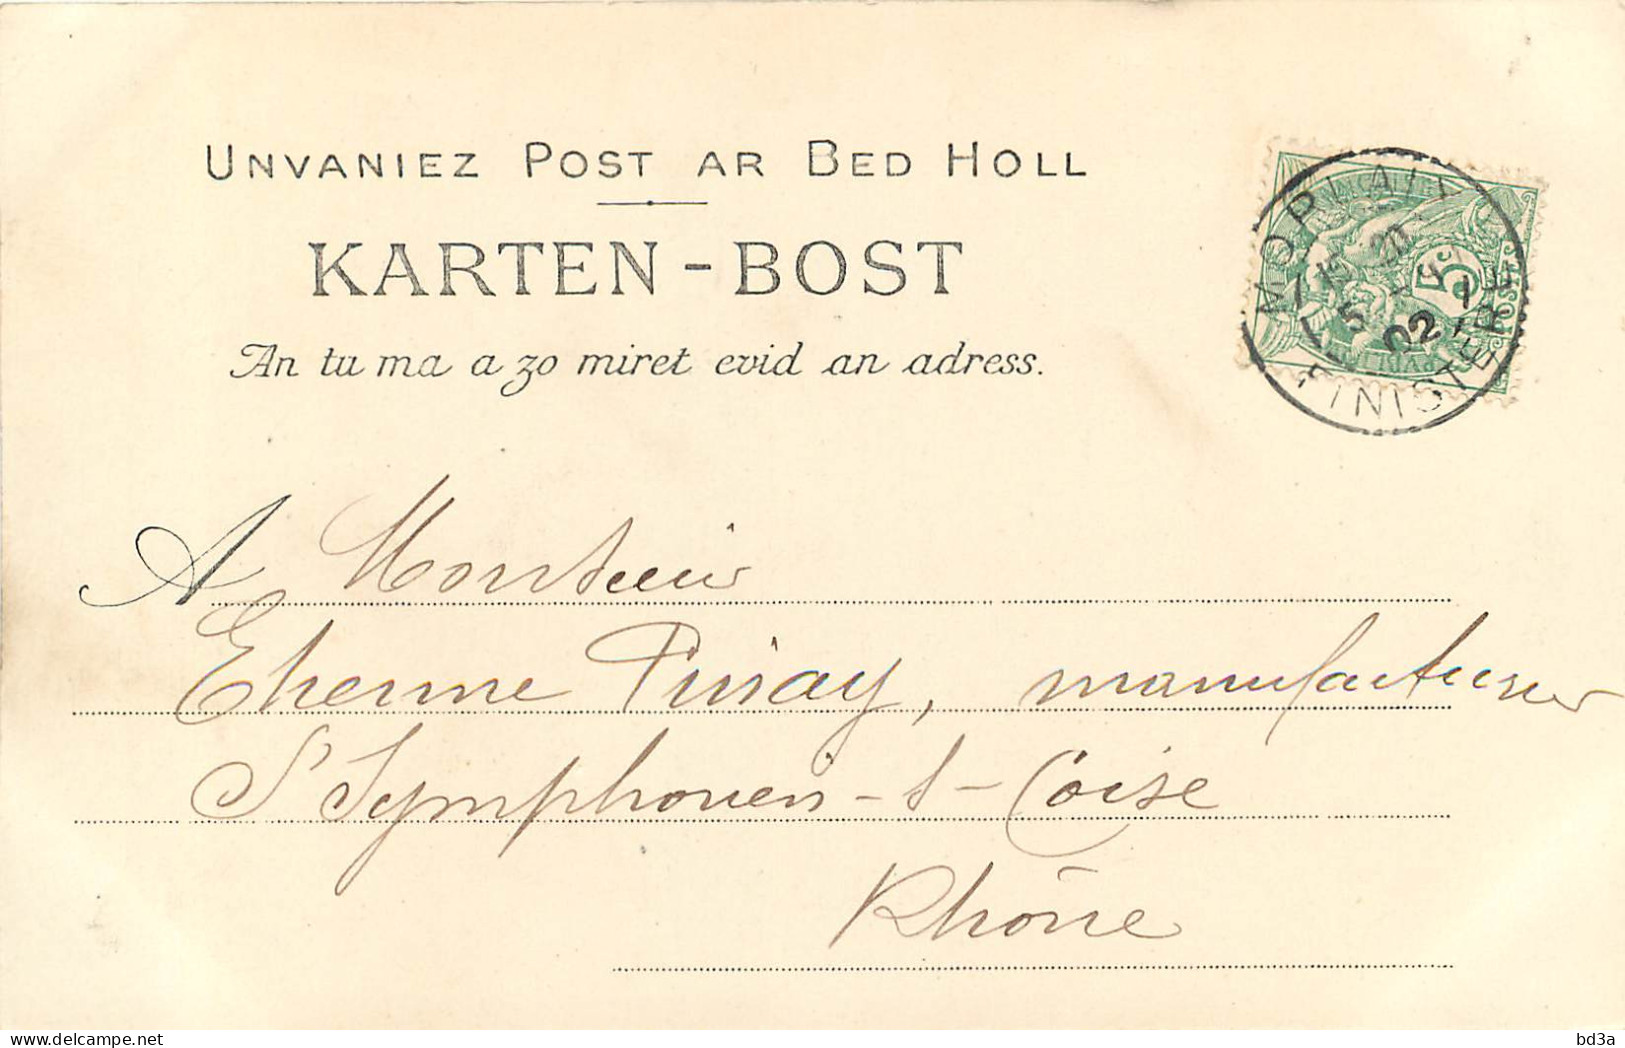 UNVANIEZ POST AR BED HOLL
KARTEN-BOST
An tu ma a zo miret evid an adress.
MORLAIX
5
02
POSTES
FINISTÈRE
A Monsieur
Etienne Pinay, manufacturier
St Symphorien-s-Coise
Rhône
delcampe.net
bd3a